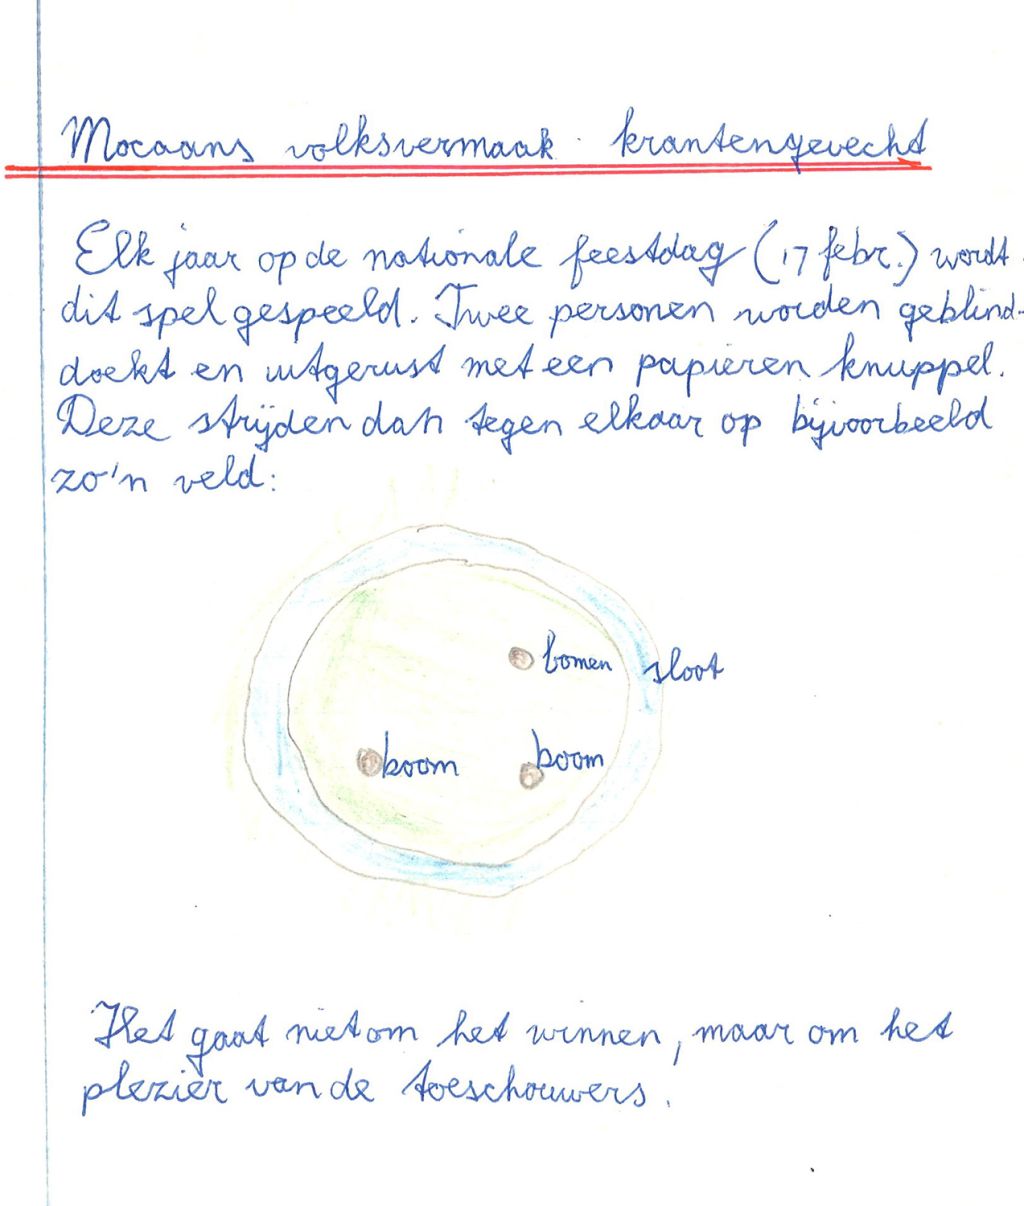 Mocaans volksvermaak: krantengevecht
Elk jaar op de nationale feestdag (17 febr.) wordt
dit spel gespeeld. Twee personen worden geblind-
doekt en uitgerust met een papieren knuppel.
Deze strijden dan tegen elkaar op bijvoorbeeld
zo'n veld:
bomen
sloot
boom
boom
Het gaat niet om het winnen, maar om het
plezier van de toeschouwers.